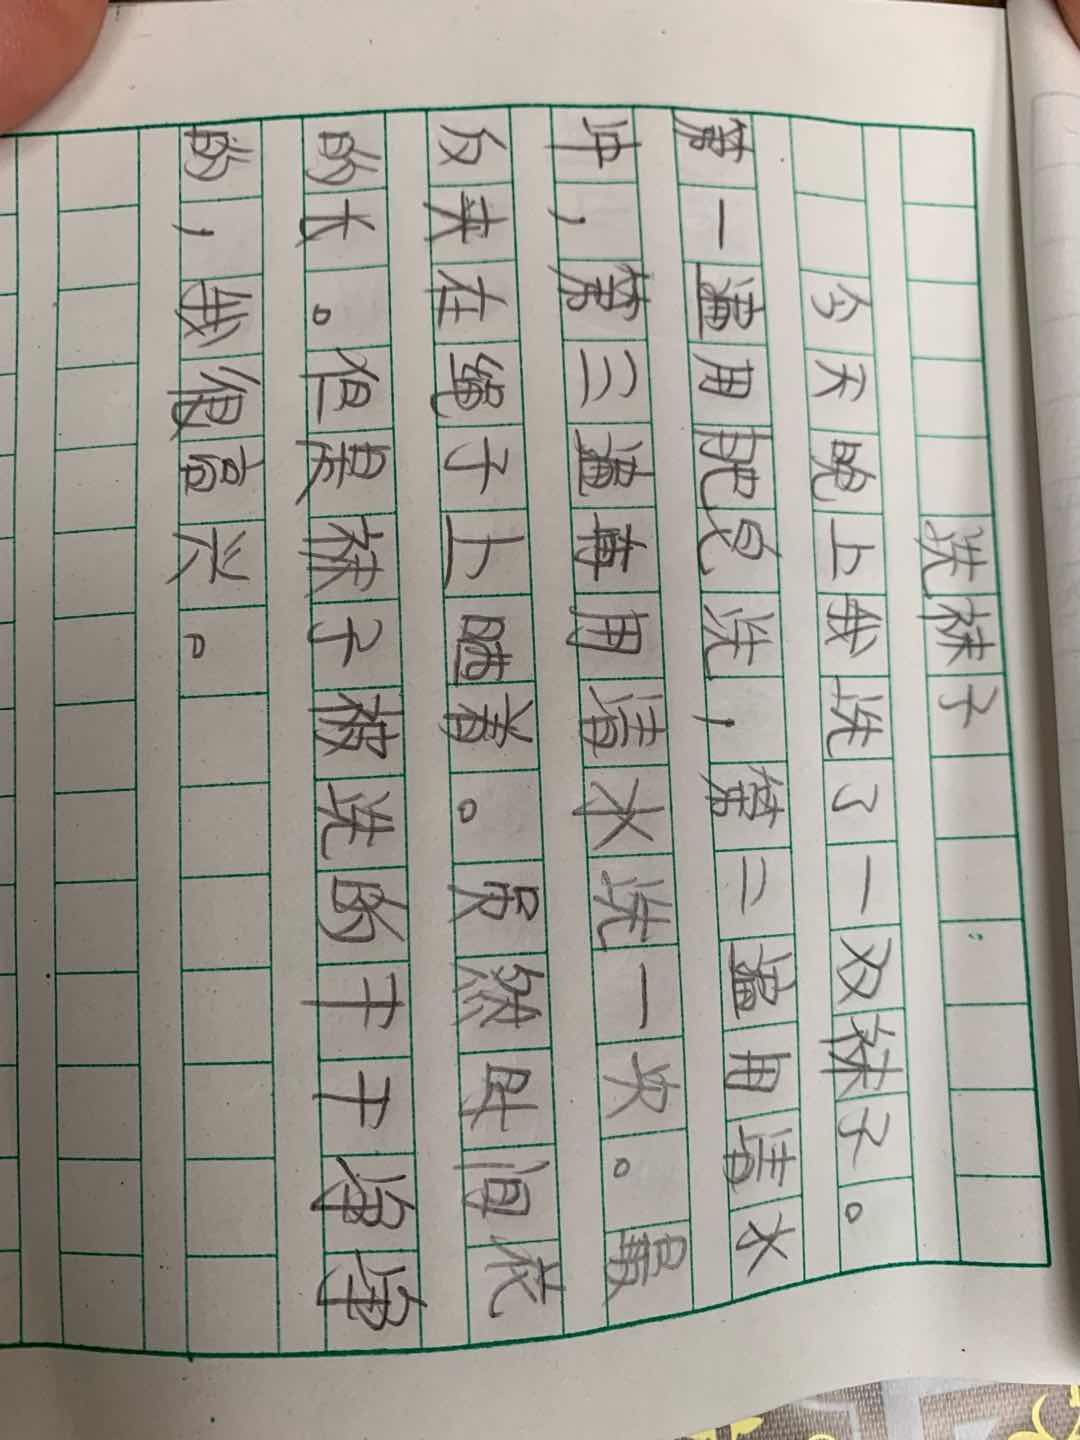 洗袜子
今天晚上我洗了一双袜子。
第一遍用肥皂洗，第二遍用清水
冲，第三遍再用清水洗一次。最
后夹在绳子上晒着。虽然时间花
的长。但是袜子被洗的干干净净
的，我很高兴。